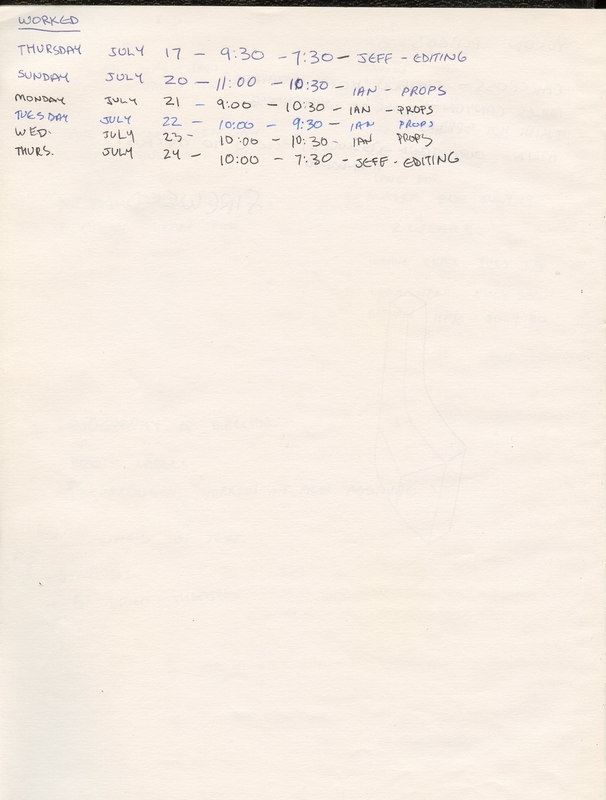 WORKED
THURSDAY JULY 17 - 9:30 - 7:30 - JEFF - EDITING
SUNDAY JULY 20 - 11:00 - 10:30 - IAN - PROPS
MONDAY JULY 21 - 9:00 - 10:30 - IAN - PROPS
TUESDAY JULY 22 - 10:00 - 9:30 - IAN PROPS
WED. JULY 23 - 10:00 - 10:30 - IAN PROPS
THURS. JULY 24 - 10:00 - 7:30 - JEFF - EDITING